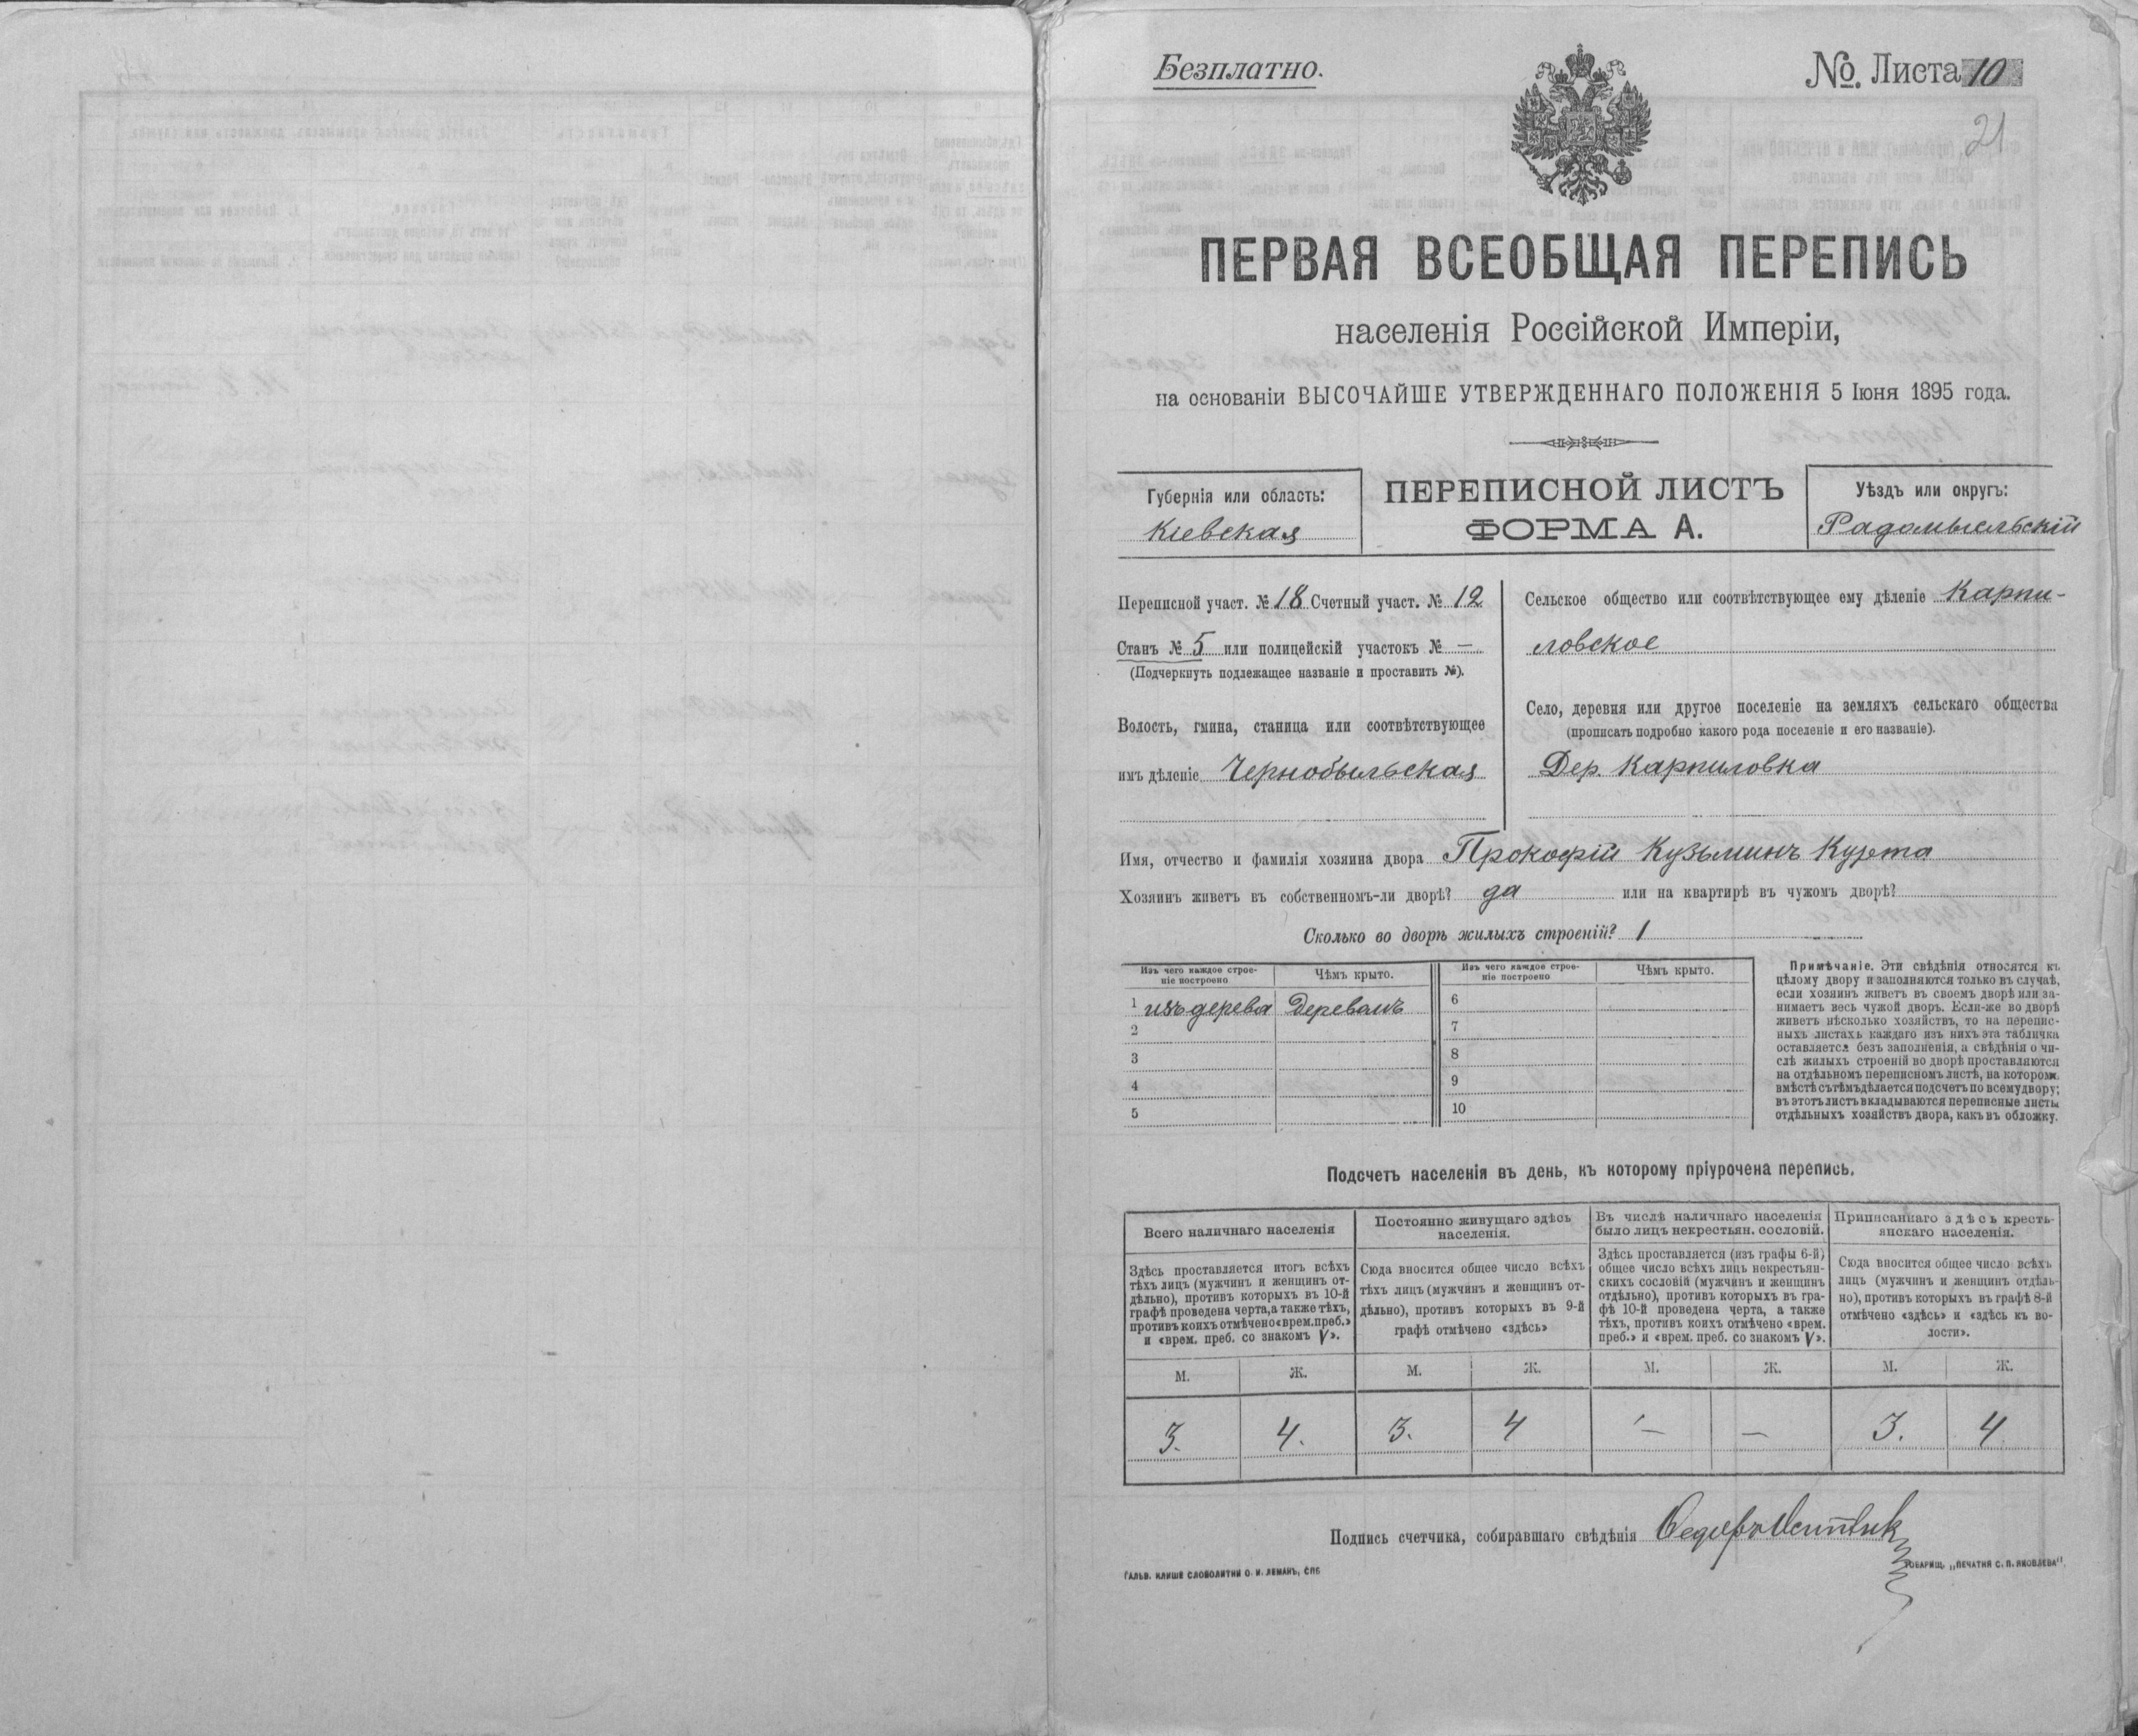 Безплатно.
№. Листа 10
21
ПЕРВАЯ ВСЕОБЩАЯ ПЕРЕПИСЬ
населенія Россійской Имперіи,
на основаніи ВЫСОЧАЙШЕ УТВЕРЖДЕННАГО ПОЛОЖЕНІЯ 5 Іюня 1895 года.
Губернія или область:
Кіевская
ПЕРЕПИСНОЙ ЛИСТЪ
ФОРМА А.
Уѣздъ или округъ:
Радомысльскій
Переписной участ. № 18 Счетный участ. № 12
Станъ № 5 или полицейскій участокъ № —
(Подчеркнуть подлежащее названіе и проставить №).
Волость, гмина, станица или соотвѣтствующее
имъ дѣленіе Чернобыльская
Сельское общество или соотвѣтствующее ему дѣленіе Карпи-
ловское
Село, деревня или другое поселеніе на земляхъ сельскаго общества
(прописать подробно какого рода поселеніе и его названіе).
Дер. Карпиловка
Имя, отчество и фамилія хозяина двора Прокофій Кузьминъ Курта
Хозяинъ живетъ въ собственномъ-ли дворѣ? да или на квартирѣ въ чужомъ дворѣ?
Сколько во дворѣ жилыхъ строеній? 1
Изъ чего каждое строе-
ніе построено
Чѣмъ крыто.
Изъ чего каждое строе-
ніе построено
Чѣмъ крыто.
1 изъ дерева Деревомъ 6
2 7
3 8
4 9
5 10
Примѣчаніе. Эти свѣдѣнія относятся къ
цѣлому двору и заполняются только въ случаѣ,
если хозяинъ живетъ въ своемъ дворѣ или за-
нимаетъ весь чужой дворъ. Если-же во дворѣ
живетъ нѣсколько хозяйствъ, то на перепис-
ныхъ листахъ каждаго изъ нихъ эта табличка
оставляется безъ заполненія, а свѣдѣнія о чи-
слѣ жилыхъ строеній во дворѣ проставляются
на отдѣльномъ переписномъ листѣ, на котором
вмѣстѣ съ тѣмъ дѣлается подсчетъ по всему двору;
въ этотъ листъ вкладываются переписные листы
отдѣльныхъ хозяйствъ двора, какъ въ обложку.
Подсчетъ населенія въ день, къ которому пріурочена перепись.
Всего наличнаго населенія
Здѣсь проставляется итогъ всѣхъ
тѣхъ лицъ (мужчинъ и женщинъ от-
дѣльно), противъ которыхъ въ 10-й
графѣ проведена черта, а также тѣхъ,
противъ коихъ отмѣчено «врем. преб.»
и «врем. преб. со знакомъ V».
Постоянно живущаго здѣсь
населенія.
Сюда вносится общее число всѣхъ
тѣхъ лицъ (мужчинъ и женщинъ от-
дѣльно), противъ которыхъ въ 9-й
графѣ отмѣчено «здѣсь»
Въ числѣ наличнаго населенія
было лицъ некрестьян. сословій.
Здѣсь проставляется (изъ графы 6-й)
общее число всѣхъ лицъ некрестьян-
скихъ сословій (мужчинъ и женщинъ
отдѣльно), противъ которыхъ въ гра-
фѣ 10-й проведена черта, а также
тѣхъ, противъ коихъ отмѣчено «врем.
преб.» и «врем. преб. со знакомъ V».
Приписаннаго здѣсь кресть-
янскаго населенія.
Сюда вносится общее число всѣхъ
лицъ (мужчинъ и женщинъ отдѣль-
но), противъ которыхъ въ графѣ 8-й
отмѣчено «здѣсь» и «здѣсь къ во-
лости».
М. Ж. М. Ж. М. Ж. М. Ж.
3. 4. 3. 4 — — 3. 4
Подпись счетчика, собиравшаго свѣдѣнія
ГАЛЬВ. КЛИШЕ СЛОВОЛИТНИ О. И. ЛЕМАНЪ, СПБ
ТОВАРИЩ. „ПЕЧАТНЯ С. П. ЯКОВЛЕВА".